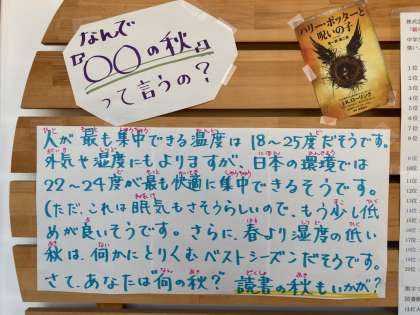 なんで
『〇〇の秋』
って言うの？
ハリー・ポッターと
呪いの子
J.K.ローリング
人が最も集中できる温度は18〜25度だそうです。
外気や湿度にもよりますが、日本の環境では
22〜24度が最も快適に集中できるそうです。
(ただ、これは眠気もさそうらしいので、もう少し低
めが良いそうです。さらに、春より湿度の低い
秋は、何かにとりくむベストシーズンだそうです。
さて、あなたは"何の秋？" 読書の秋もいかが？